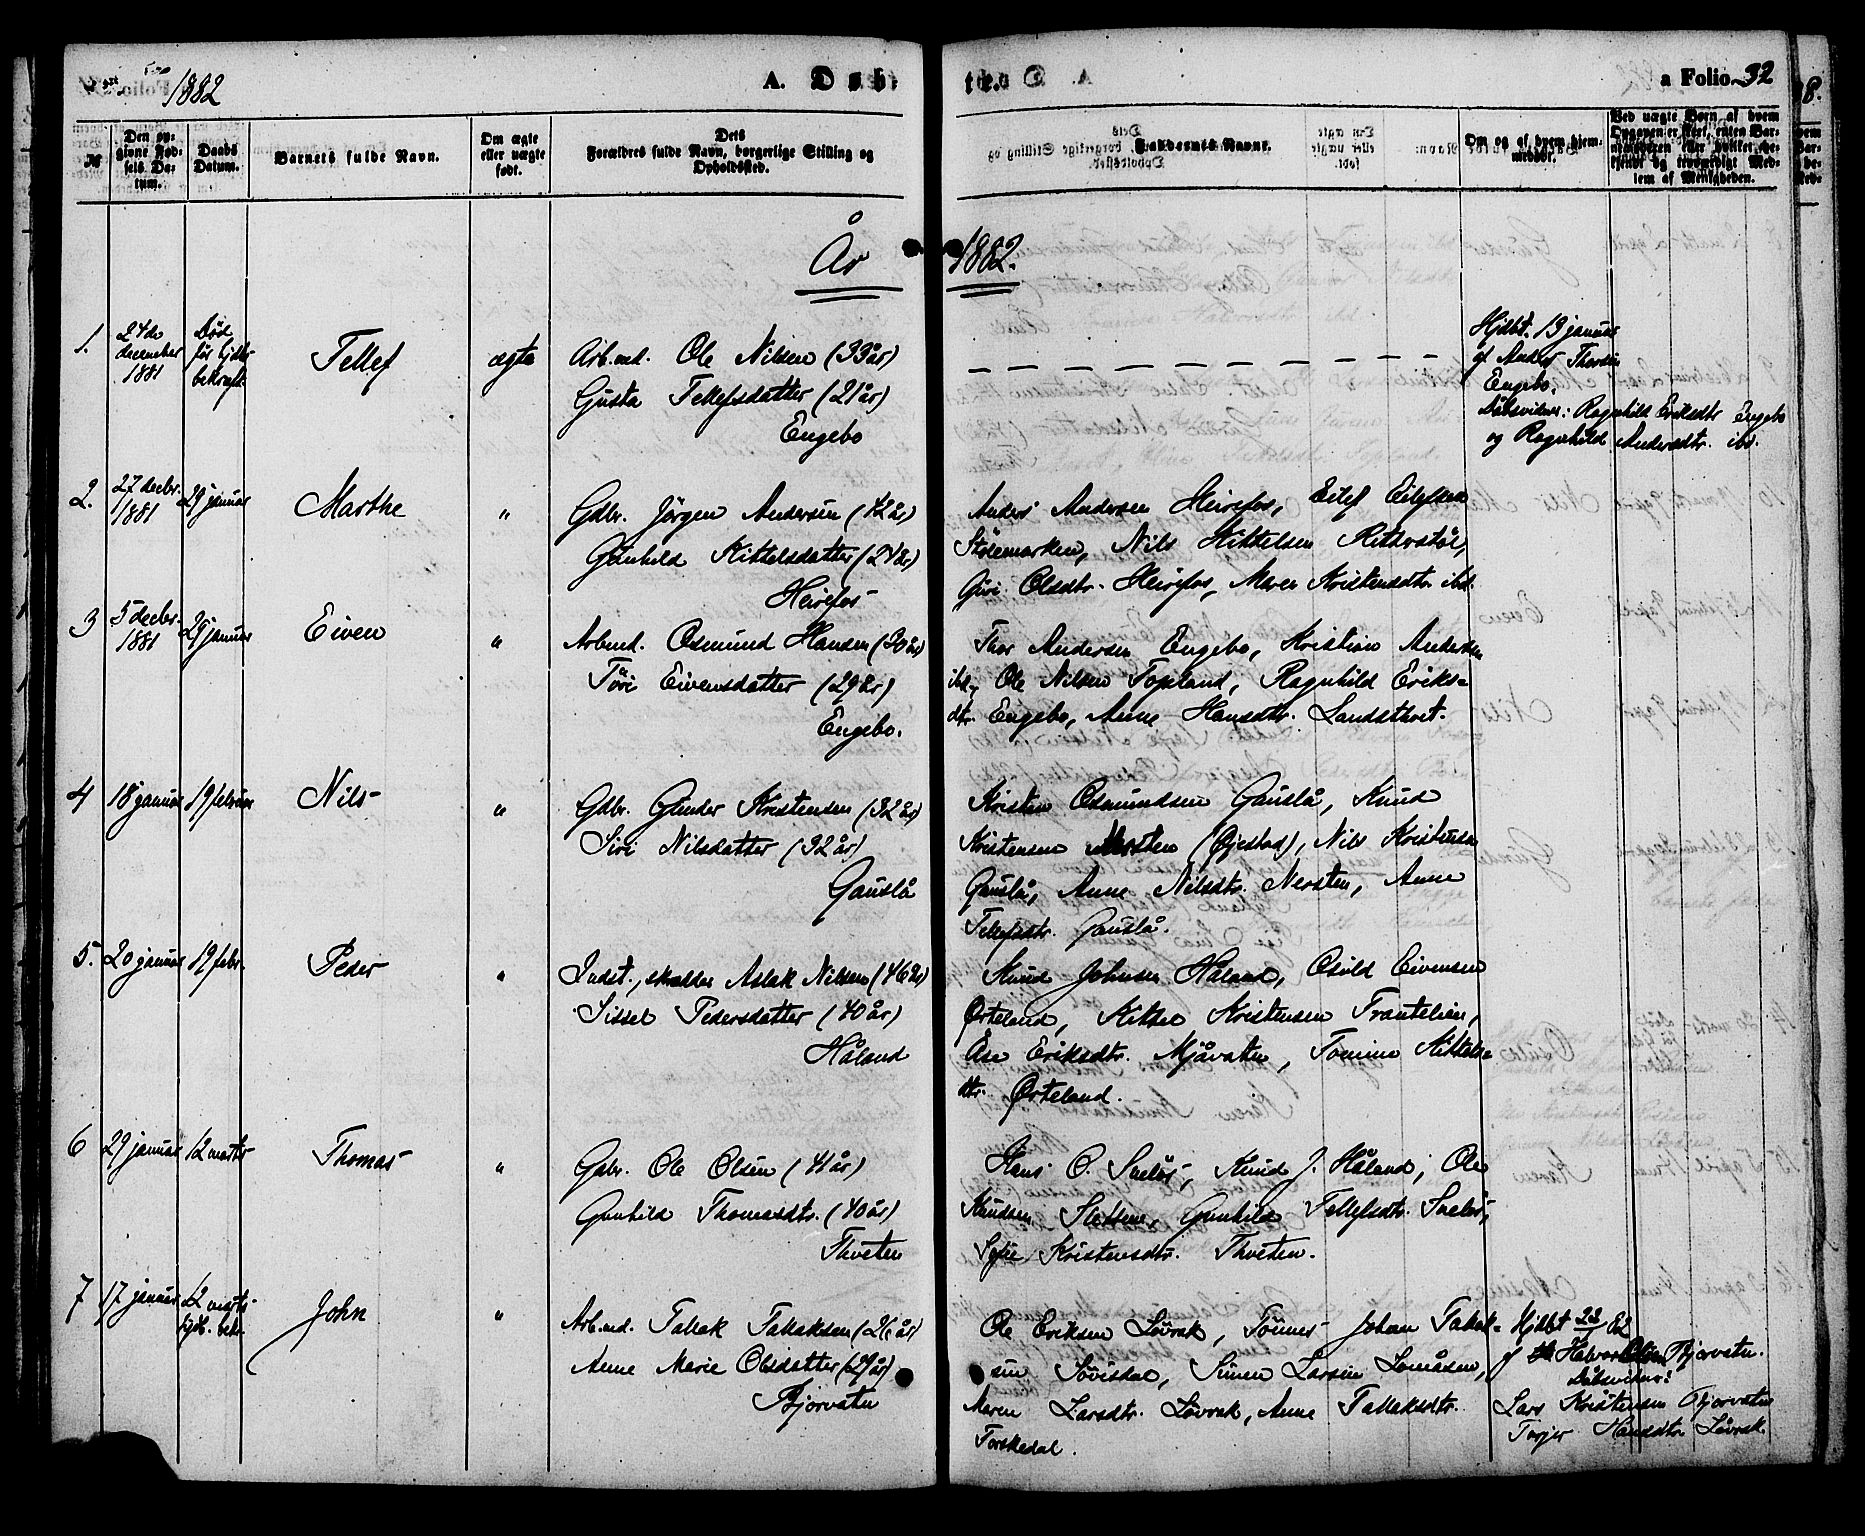 1882
A. Døbte.
a Folio 32
№
Den op-
givne Fød-
sels Da-
tum.
Daabs
Datum.
Barnets fulde Navn.
Om ægte
eller uægte
født.
Dets
Forældres fulde Navn, borgerlige Stilling og
Opholdssted.
Faddernes Navne.
Om og af hvem hjem-
medøbt.
Ved uægte Børn af hvem
Opgaven er skeet, enten Bar-
nemoderen eller hvilket be-
kjendt og troværdigt Med-
lem af Menigheden.
År 1882.
1.
24de
december
1881
Død
før hjdbs
bekræft.
Tellef
ægte
Arb.md. Ole Nilsen (33 år)
Gusta Tellefsdatter (21 år)
Engebo
Hjdbt. 13 januar
af Anders Thorsen
Engebo.
Dåbsvidner: Ragnhild Eriksdtr Engebo
og Ragnhild Andersdtr. ibd.
2.
27 decbr.
1881
29 januar
Marthe
"
Gdbr. Jörgen Andersen (42 år)
Gunhild Kittelsdatter (24 år)
Heirefos
Anders Andersen Heirefos, Eilef Eilefsen
Stölemarken, Nils Kittelsen Rettestöl,
Guri Olsdtr. Heirefos, Maren Kristensdtr ibd.
3
5 decbr.
1881
29 januar
Eiven
"
Arbmd. Osmund Hansen (30 år)
Töri Eivensdatter (29 år)
Engebo.
Thor Andersen Engebo, Kristian Andersen
ibd., Ole Nilsen Topland, Ragnhild Eriks-
dtr. Engebo, Anne Hansdtr. Landsthvet.
4
18 januar
19 februar
Nils
"
Gdbr. Gunder Kristensen (32 år)
Siri Nilsdatter (32 år)
Gauslå
Kristen Osmundsen Gauslå, Knud
Kristensen Nersten (Øiestad), Nils Kristensen
Gauslå, Anne Nilsdtr. Nersten, Anne
Tellefsdtr. Gauslå.
5.
20 januar
19 febr.
Peder
"
Indst., skredder Aslak Nilsen (46 år)
Sissel Pedersdatter (40 år)
Håland
Knud Johnsen Håland, Osuld Eivensen
Ørteland, Kittel Kristensen Trantelien,
Åse Eriksdtr. Mjåvatn, Tomine Kittels-
dtr. Ørteland.
6
29 januar
12 marts
Thomas
"
Gdbr. Ole Olsen (41 år)
Gunhild Thomasdtr. (40 år)
Thveten
Hans O. Snelös, Knud J. Håland, Ole
Knudsen Slettene, Gunhild Tellefsdtr. Snelös,
Sofie Kristensdtr. Thveten.
7
17 januar
12 marts
hjdb. bekr.
John
"
Arb.md. Tallak Tallaksen (26 år)
Anne Marie Olsdatter (29 år)
Bjorvatn
Ole Eriksen Lövrak, Tönnes Johan Tallak-
sen Lövisdal, Simen Larsen Lomåsen,
Maren Larsdtr. Lövrak, Anne Tallaksdtr.
Torskedal.
Hjdbt 22/1 82
af Halvor Olsen Bjorvatn.
Dåbsvidner:
Lars Kristensen Bjorvatn
Torjer Hansdtr Lövrak.